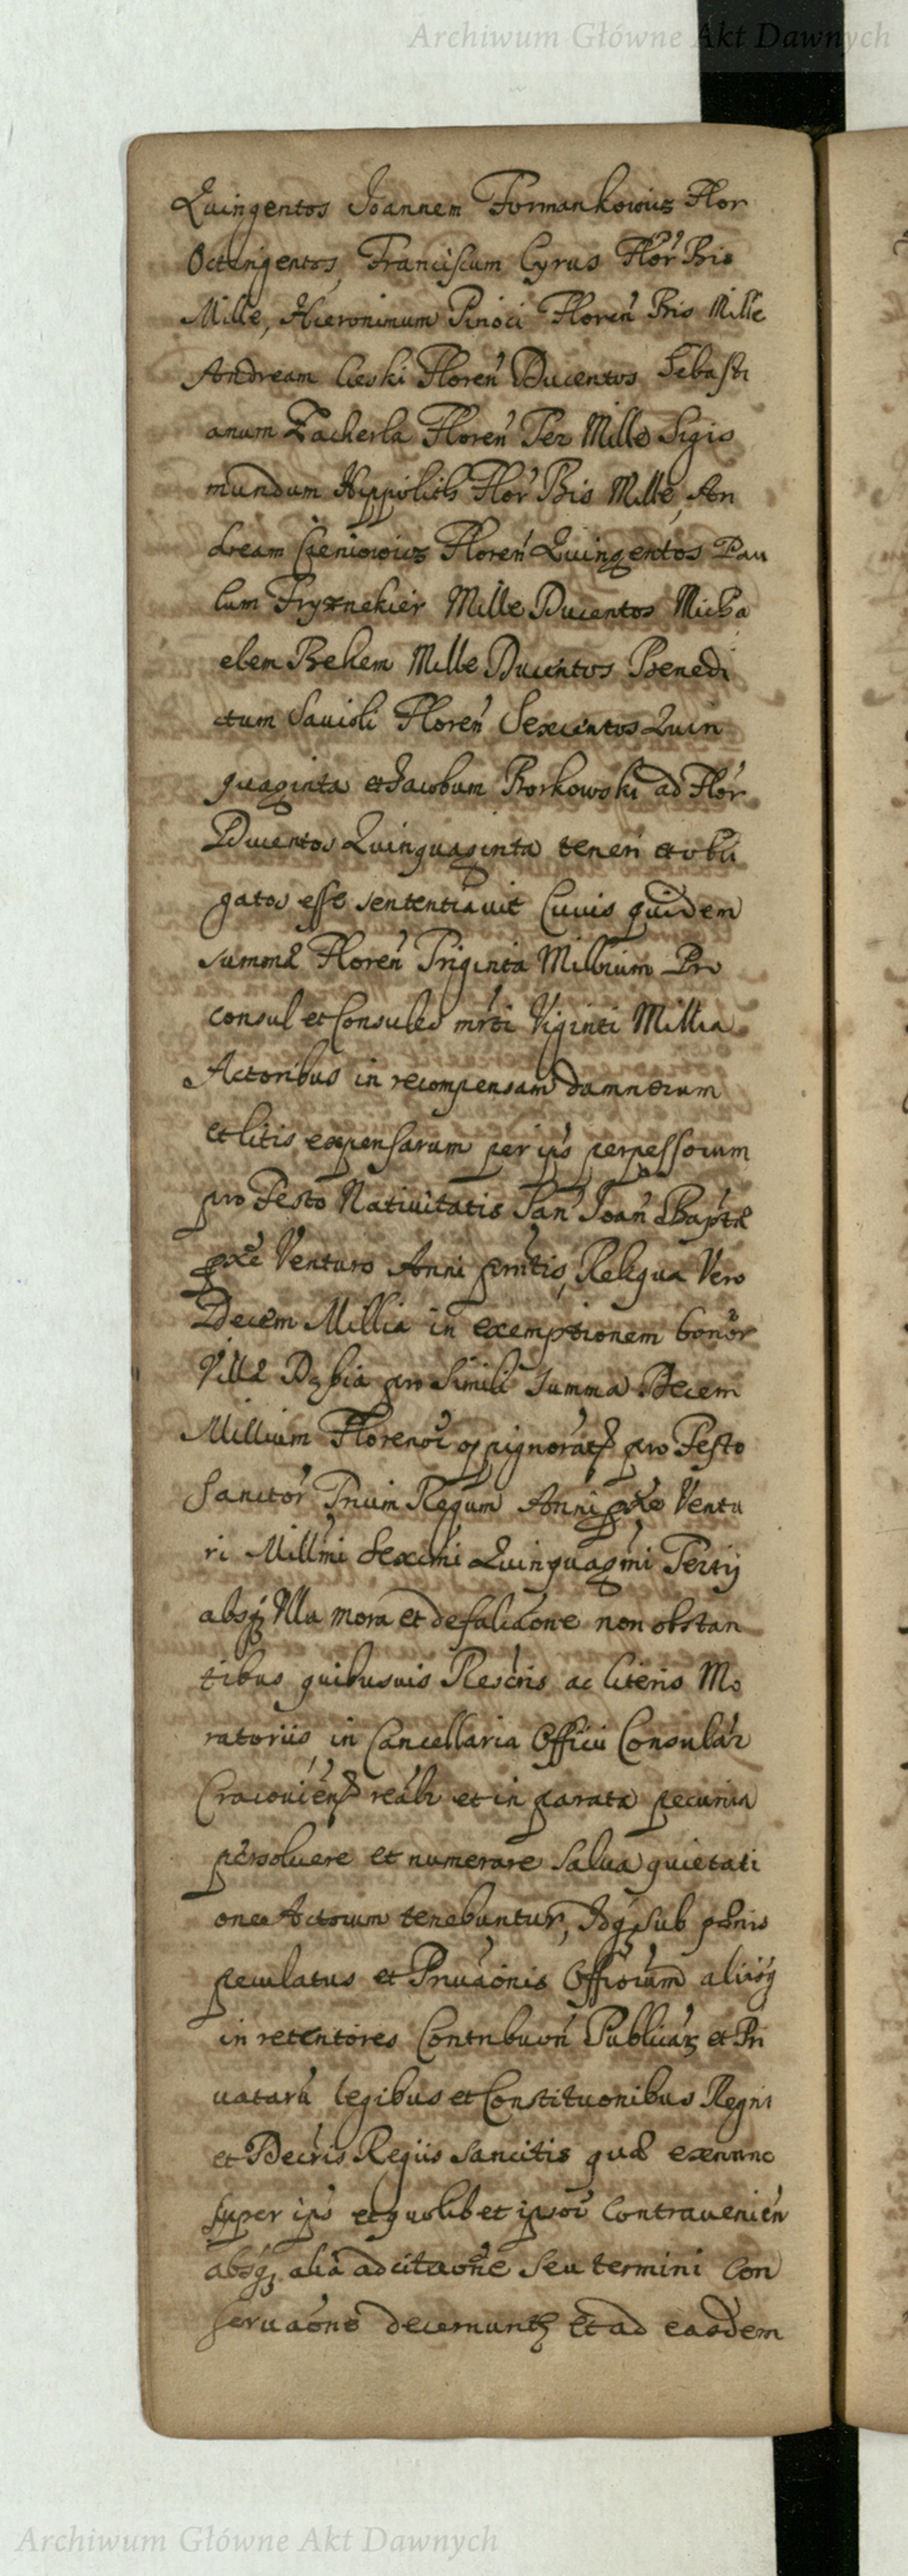 Archiwum Główne Akt Dawnych
Quingentos Joannem Formankowicz Flor
Octingentos, Franciscum Cyrus Flor̃ Bis
Mille, Hieronimum Pinoci Floreñ Bis Mille
Andream Cieski Floreñ Ducentos Sebasti
anum Zacherla Floreñ Ter Mille Sigis
mundum Hippolith Flor̃ Bis Mille, An
dream Czeniowicz Floreñ Quingentos Pau
lum Fryznekier Mille Ducentos Micha
elem Behem Mille Ducentos Benedi
ctum Savioli Floreñ Sexcentos Quin
quaginta et Jacobum Borkowski ad Flor̃
Ducentos Quinquaginta teneri et obli
gatos esse sententiavit Cuius quidem
summæ Floreñ Triginta Millium Pro
consul et Consules mr̃ti Viginti Millia
Actoribus in recompensam damnorum
et litis expensarum per ip̃s perpessorum
pro Festo Nativitatis San Joañ Bap̃tæ
pxe Venturo Anni pr̃ntis, Reliqua Vero
Decem Millia in exemptionem bonor̃
Villæ Dąbia pro simili summa Decem
Millium Florenor̃ oppignorat pro Festo
Sanctor̃ Trium Regum Anni pxe Ventu
ri Mill̃mi Sexc̃mi Quinquag̃mi Tertij
absq Ulla mora et defalcaõne non obstan
tibus quibusuis Rescr̃is ac literis Mo
ratoriis, in Cancellaria Officii Consular̃
Cracovien realr et in parata pecunia
persoluere et numerare salua quietati
one Actorum tenebuntur, Idq sub pænis
peculatus et Priuaõnis Officiorum aliisq
in retentores Contribuoñ Publicar et Pri
uatarũ legibus et Constituonibus Regni
et Decr̃is Regiis sancitis quæ exnunc
super ip̃s et quolibet ipsor̃ contravenieñ
absq alia adcitaoñe seu termini Con
seruaõne decernunt Et ad easdem
Archiwum Główne Akt Dawnych